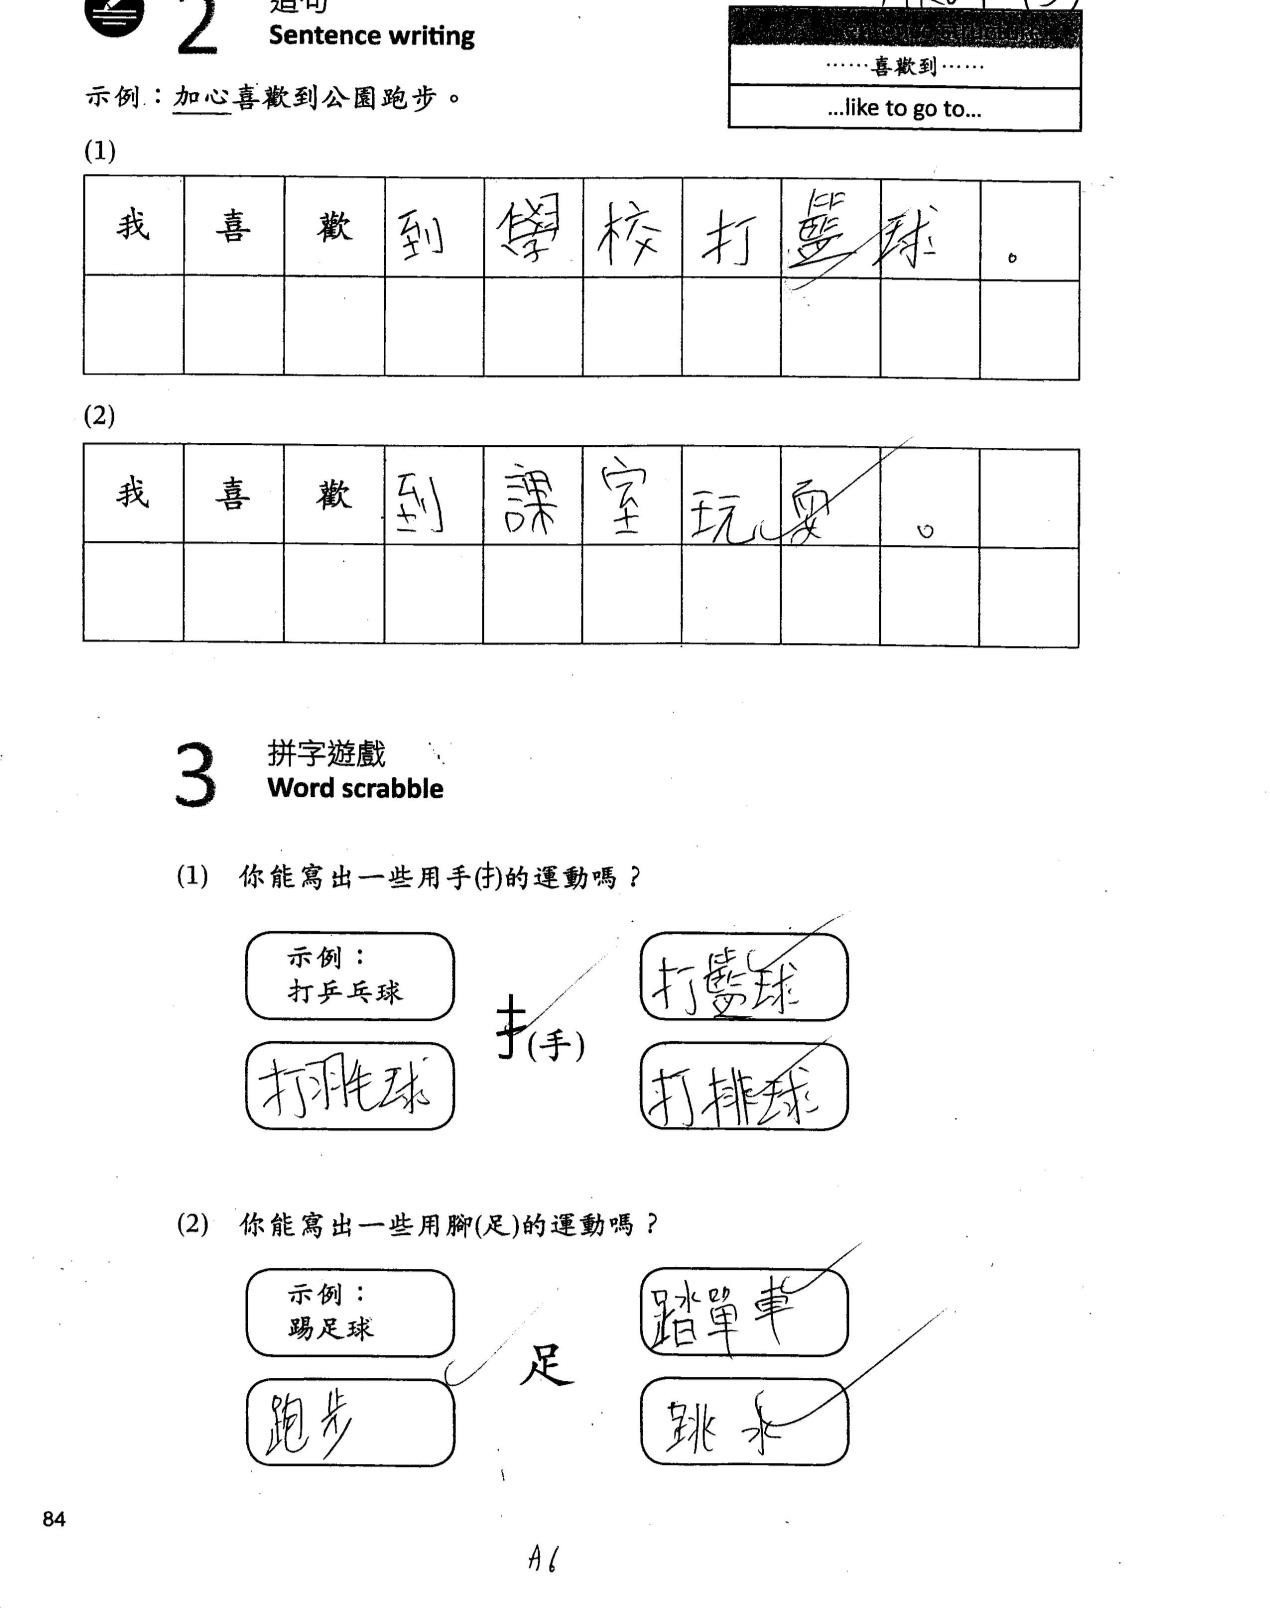 2
造句
Sentence writing
……喜歡到……
...like to go to...
示例：加心喜歡到公園跑步。
(1)
我喜歡到學校打籃球。
(2)
我喜歡到課室玩耍。
3
拼字遊戲
Word scrabble
(1) 你能寫出一些用手(扌)的運動嗎？
示例：
打乒乓球
打籃球
扌(手)
打羽毛球
打排球
(2) 你能寫出一些用腳(足)的運動嗎？
示例：
踢足球
踏單車
足
跑步
跳水
84
A6